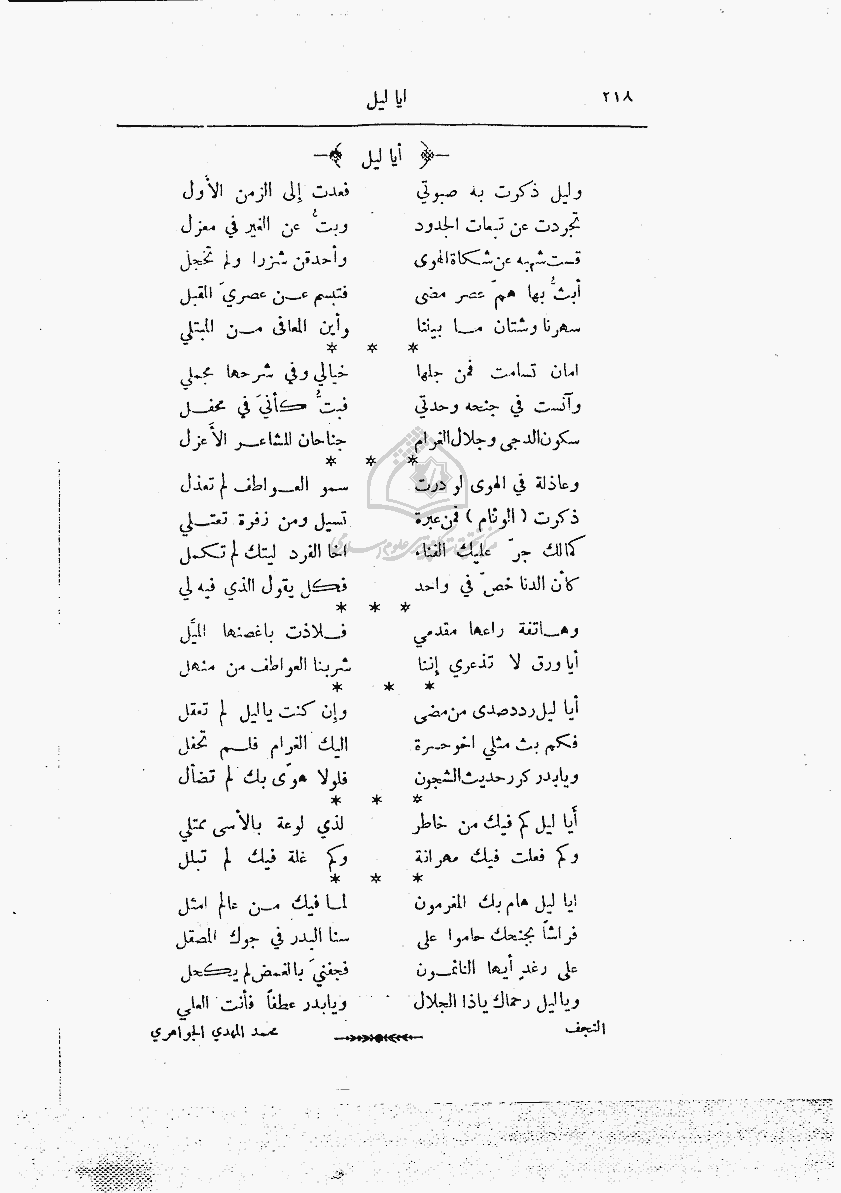 ٢١٨ ايا ليل
أيا ليل
وليل ذكرت به صبوتي فعدت إلى الزمن الأول
تجردت عن تبعات الجدود وبتُّ عن الغير في معزل
قست شهبه عن شكاة الهوى وأحدقن شزرا ولم تخجل
أبثُّ بها همّ عصر مضى فتبسم عن عصريَ المقبل
سهرنا وشتان ما بيننا وأين المعافى من المبتلي
* * *
امان تسامت فمن جلها خيالي وفي شرحها مجملي
وآنست في جنحه وحدتي فبتُّ كأنيَ في محفل
سكون الدجى وجلال الغرام جناحان للشاعر الأعزل
* * *
وعاذلة في الهوى لو درت سمو العواطف لم تعذل
ذكرت ( الوئام ) فمن عبرة تسيل ومن زفرة تعتلي
كمالك جرّ عليك الفناء اخا الفرد ليتك لم تكمل
كأن الدنا خصّ في واحد فكل يقول الذي فيه لي
* * *
وهاتفة راعها مقدمي فلاذت باغصنها الميَّل
أيا ورق لا تذعري إننا شربنا العواطف من منهل
* * *
أيا ليل ردد صدى من مضى وإن كنت ياليل لم تعقل
فكم بث مثلي اخو حسرة اليك الغرام فلم تحفل
ويابدر كرر حديث الشجون فلولا هوًى بك لم تضأل
* * *
أيا ليل كم فيك من خاطر لذي لوعة بالأسى ممتلي
وكم فعلت فيك مهرانة وكم غلة فيك لم تبلل
* * *
ايا ليل هام بك المغرمون لما فيك من عالم امثل
فراشاً بجنحك حاموا على سنا البدر في جوك المصقل
على رغد أيها النائمون فجفنيَ بالغمض لم يكحل
وياليل رحماك ياذا الجلال ويابدر عطفاً فأنت العلي
النجف محمد المهدي الجواهري